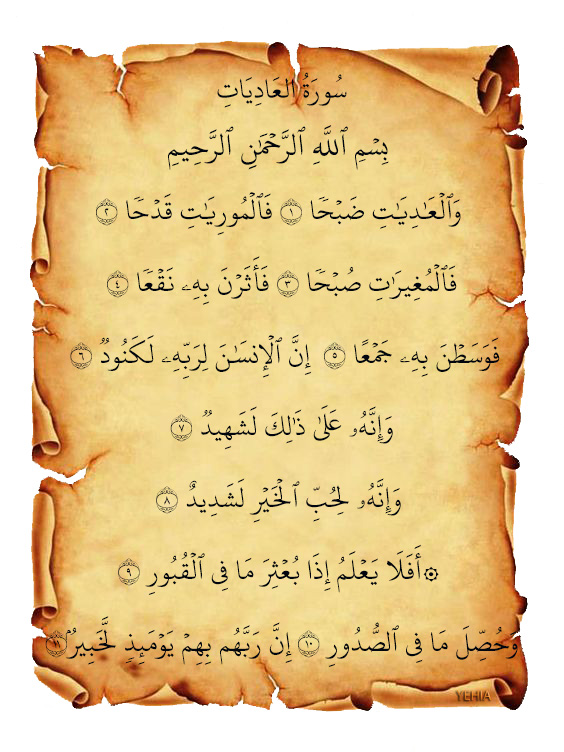 سُورَةُ العَادِيَاتِ
بِسۡمِ ٱللَّهِ ٱلرَّحۡمَٰنِ ٱلرَّحِيمِ
وَٱلۡعَٰدِيَٰتِ ضَبۡحٗا ١ فَٱلۡمُورِيَٰتِ قَدۡحٗا ٢
فَٱلۡمُغِيرَٰتِ صُبۡحٗا ٣ فَأَثَرۡنَ بِهِۦ نَقۡعٗا ٤
فَوَسَطۡنَ بِهِۦ جَمۡعًا ٥ إِنَّ ٱلۡإِنسَٰنَ لِرَبِّهِۦ لَكَنُودٞ ٦
وَإِنَّهُۥ عَلَىٰ ذَٰلِكَ لَشَهِيدٞ ٧
وَإِنَّهُۥ لِحُبِّ ٱلۡخَيۡرِ لَشَدِيدٌ ٨
۞ أَفَلَا يَعۡلَمُ إِذَا بُعۡثِرَ مَا فِي ٱلۡقُبُورِ ٩
وَحُصِّلَ مَا فِي ٱلصُّدُورِ ١٠ إِنَّ رَبَّهُم بِهِمۡ يَوۡمَئِذٖ لَّخَبِيرُۢ ١١
YEHIA